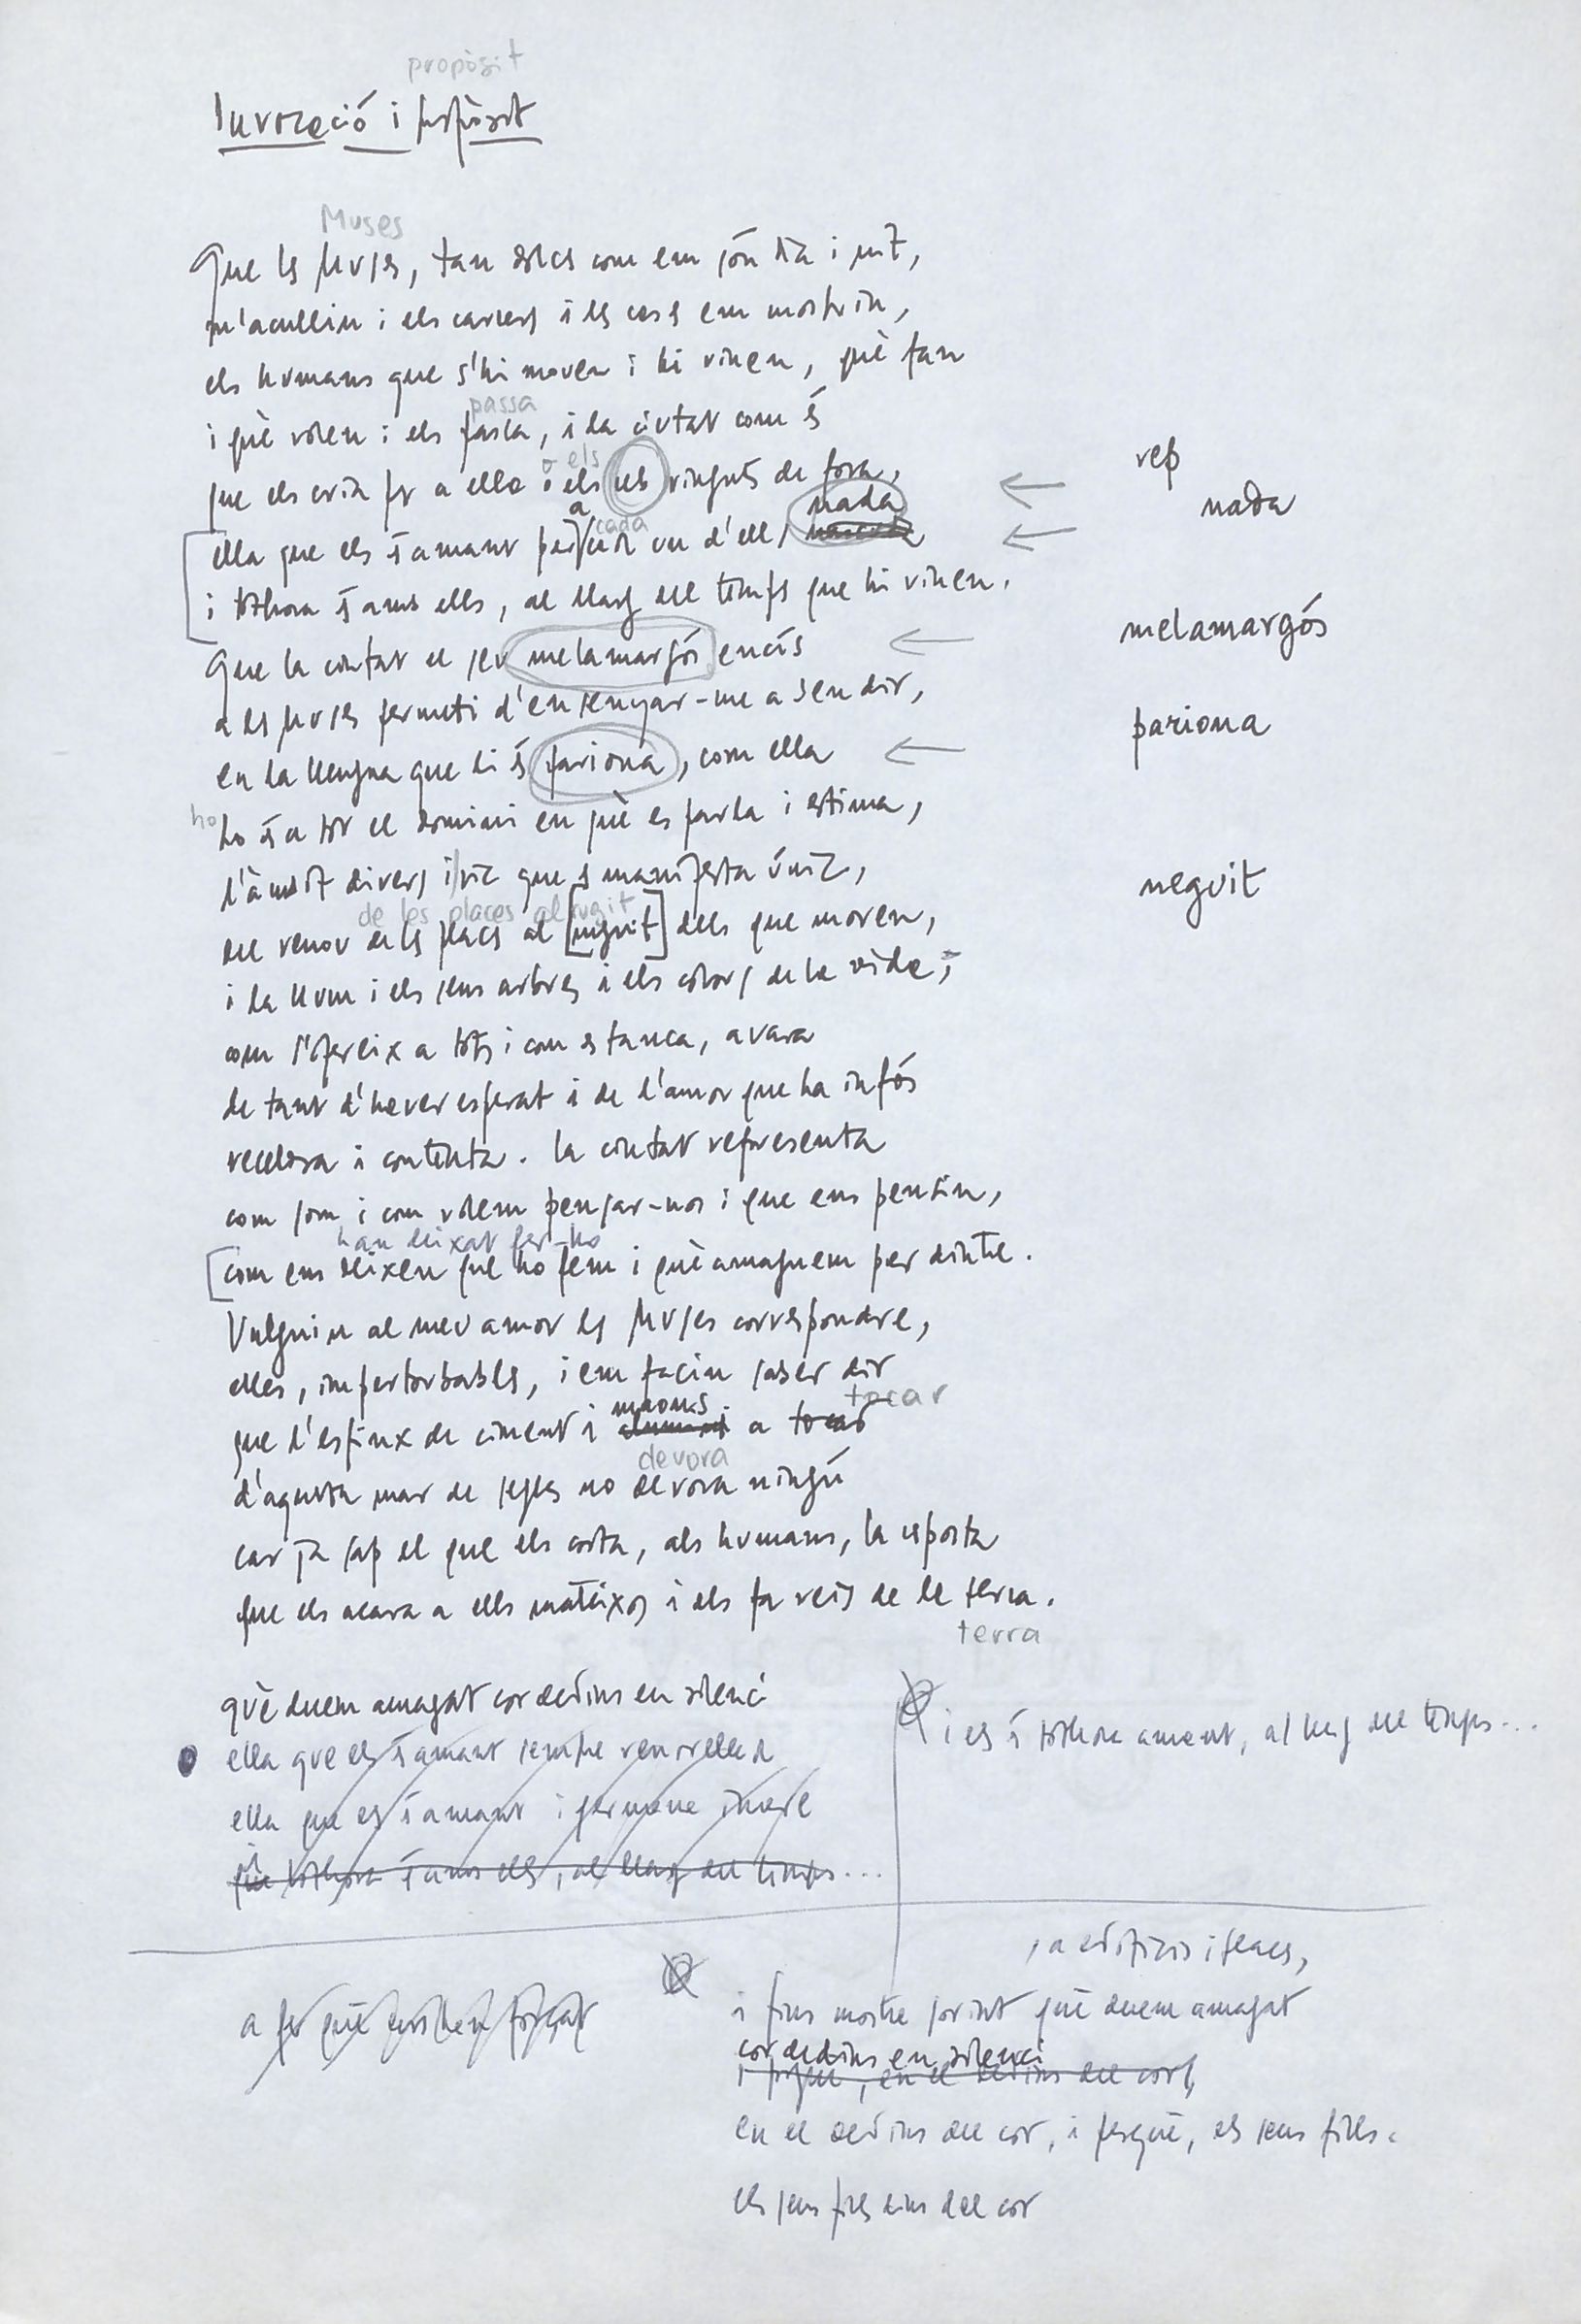 propòsit
Invocació i propòsit
Muses
Que les Muses, tan dolces com em són dia i nit,
m'acullin i els carrers i les cases em mostrin,
els humans que s'hi mouen i hi viuen, què fan
passa
i què volen i els passa, i la ciutat com és
o els
que els cria per a ella o els rep vinguts de fora,
a nada
cada
ella que els és amant per a cada un d'ells
i tothora és amb ells, al llarg del temps que hi viuen.
Que la ciutat el seu melamargós encís
a les Muses permeti d'ensenyar-me a ben dir,
en la llengua que li és pariona, com ella
ho
ho és a tot el domini en què es parla i estima,
l'àmbit divers i ric que es manifesta únic,
de les places al rugit
del renou de les places al [neguit] dels que moren,
i la llum i els seus arbres i els colors de la vida;
com s'ofereix a tots i com es tanca, avara
de tant d'haver esperat i de l'amor que ha infós
recelosa i contenta. La ciutat representa
com som i com volem pensar-nos i que ens pensin,
han deixat fer-ho
com ens deixen que ho fem i què amaguem per dintre.
Vulguin al meu amor les Muses correspondre,
elles, impertorbables, i em facin saber dir
maons tocar
que l'esfinx de ciment i alumini a tocar
devora
d'aquesta mar de segles no devora ningú
car ja sap el que els costa, als humans, la resposta
que els acara a ells mateixos i els fa reis de la terra.
terra
rep
nada
melamargós
pariona
neguit
què duem amagat cor dedins en silenci
ella que els és amant sempre renovellada
ella que els és amant i permana
que tothora és amb ells, al llarg del temps...
i els és tothora amant, al llarg del temps...
a per què
, a edificis i places,
i fins mostre sovint què duem amagat
cor dedins en silenci
i perquè, en el dedins del cor,
en el dedins del cor, i perquè, els seus fills.
els seus fills dins del cor